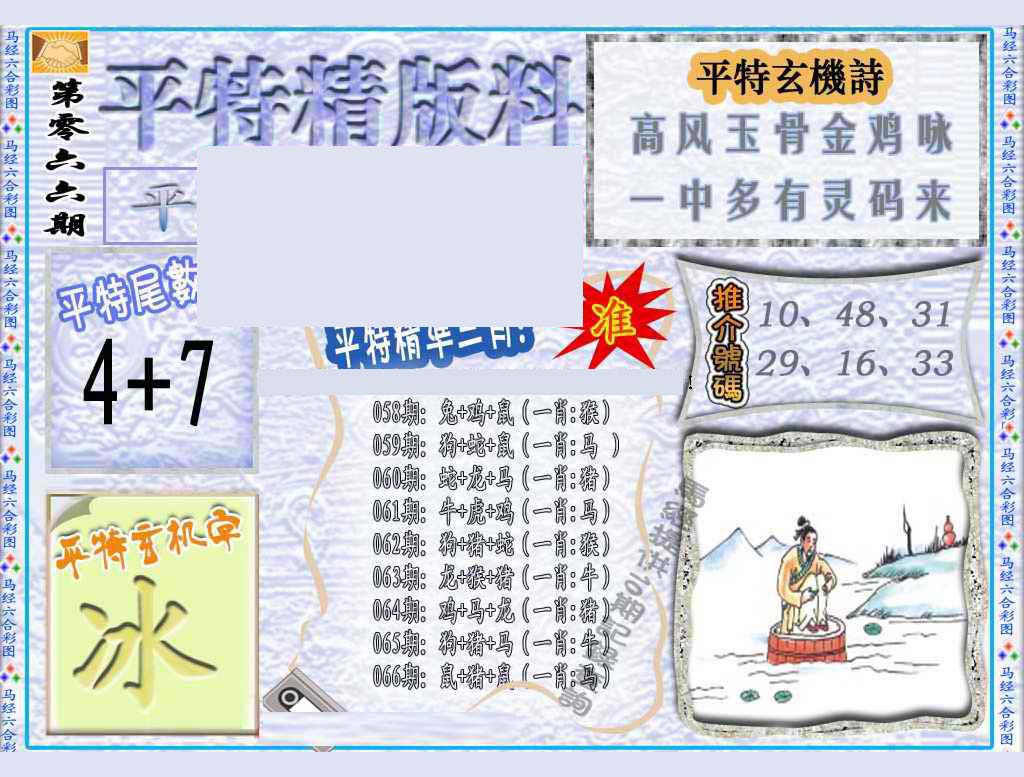 第零六六期
平特精版料
平
平特玄機詩
高风玉骨金鸡咏
一中多有灵码来
平特尾數
4+7
平特精準一肖:
准
推介號碼
10、48、31
29、16、33
058期: 兔+鸡+鼠(一肖:猴)
059期: 狗+蛇+鼠(一肖:马 )
060期: 蛇+龙+马(一肖:猪)
061期: 牛+虎+鸡(一肖:马)
062期: 狗+猪+蛇(一肖:猴)
063期: 龙+猴+猪(一肖:牛)
064期: 鸡+马+龙(一肖:猪)
065期: 狗+猪+马(一肖:牛)
066期: 鼠+猪+鼠(一肖:马)
平特玄机字
冰
马经六合彩图 马经六合彩图 马经六合彩图 马经六合彩图 马经六合彩图 马经六合彩图 马经六合彩
马经六合彩图 马经六合彩图 马经六合彩图 马经六合彩图 马经六合彩图 马经六合彩图 马经六合彩图